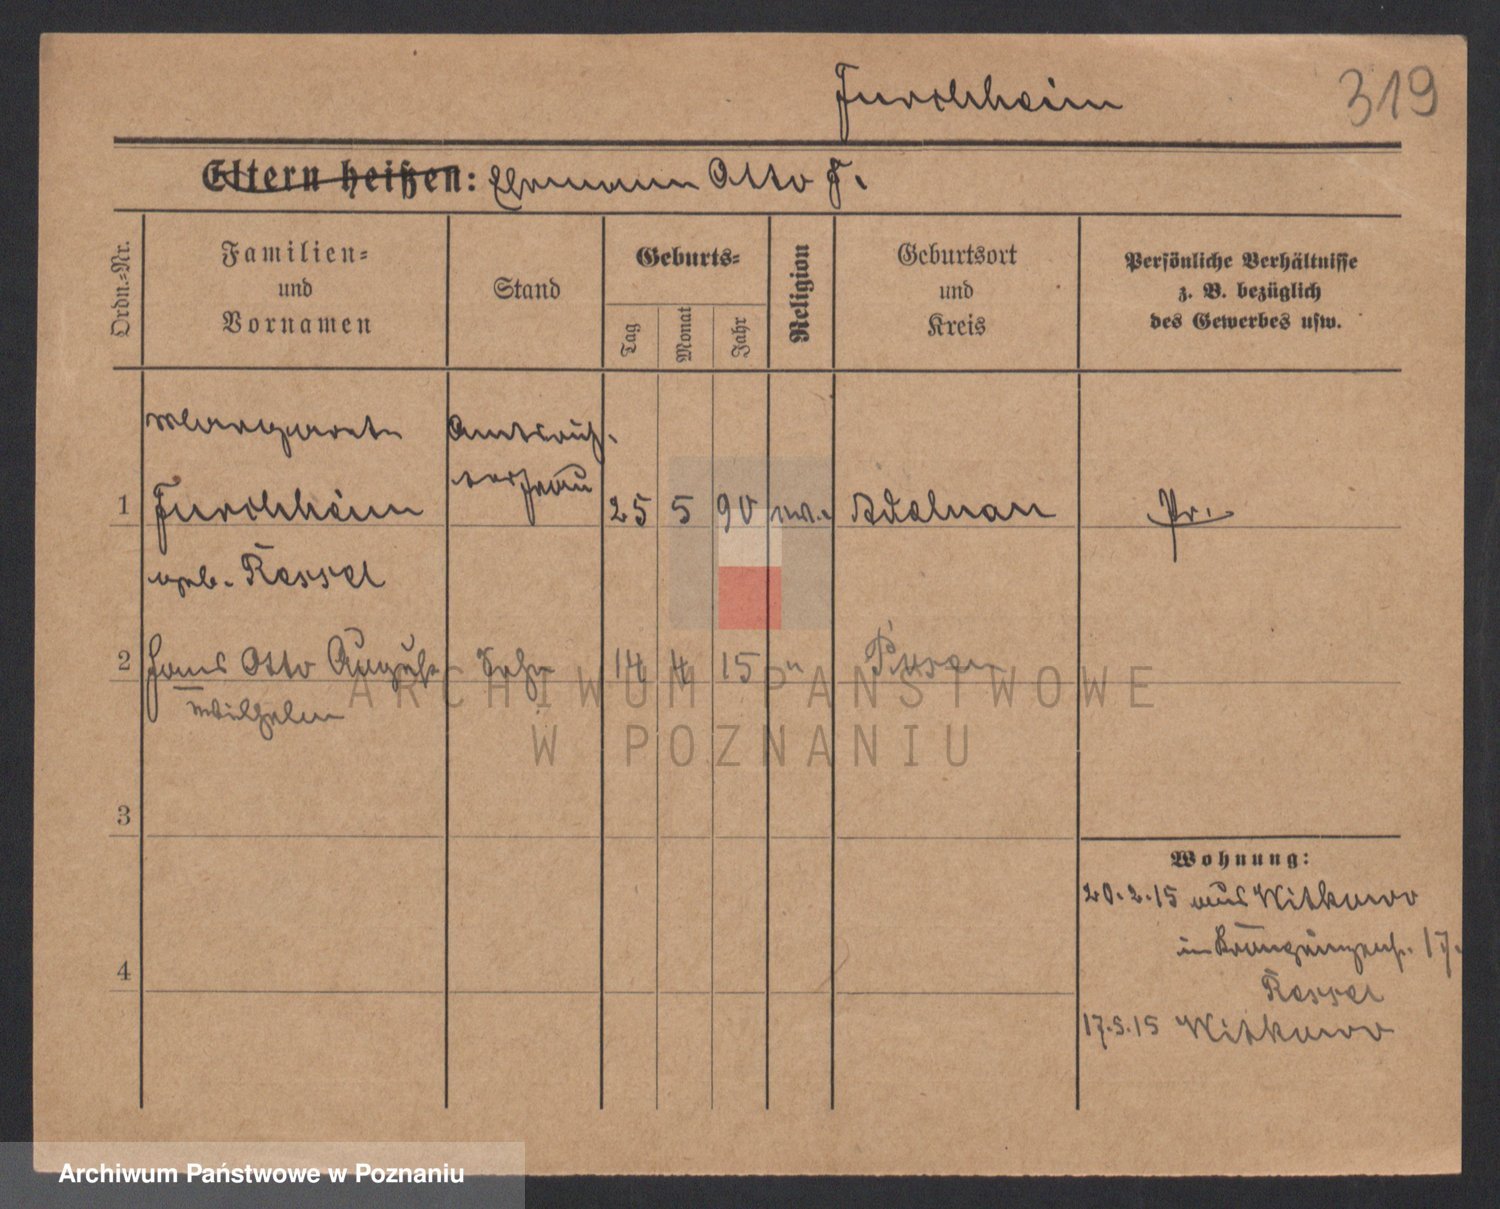 Furchheim
319
Eltern heißen: Ehemann Otto F.
Ordn.=Nr.
Familien=
und
Vornamen
Stand
Geburts=
Tag
Monat
Jahr
Religion
Geburtsort
und
Kreis
Persönliche Verhältnisse
z. B. bezüglich
des Gewerbes usw.
Margarete
Amtsrich-
terfrau
1
Furchheim
25 5 90 ev.
Pr.
geb. Kessel
2
Hans Otto August
Sohn
14 4 15 "
Posen
Wilhelm
3
4
Wohnung:
20.2.15 aus Witkowo
in 17.
Kessel
17.5.15 Witkowo
ARCHIWUM PAŃSTWOWE
W POZNANIU
Archiwum Państwowe w Poznaniu